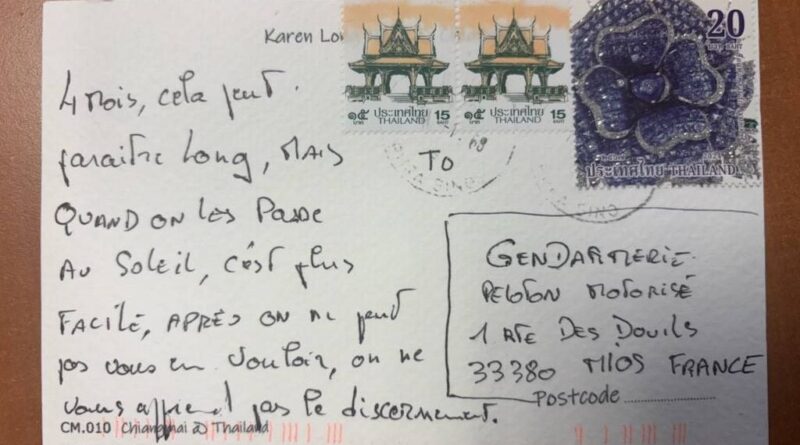 Karen Lon
4 Mois, cela peut
paraitre Long, MAIS
QUAND ON LES PASSE
AU SOLEIL, c'est plus
FACILE, APRÈS ON NE peut
pas vous en vouloir, on ne
vous apprend pas le discernement.
CM.010 Chiangmai Thailand
๑๕ ประเทศไทย 15
บาท THAILAND BAHT
๑๕ ประเทศไทย 15
บาท THAILAND BAHT
20
บาท BAHT
ประเทศไทย THAILAND
TO
GENDARMERIE
PELOTON MOTORISÉ
1 RTE DES DOUILS
33380 MIOS FRANCE
Postcode